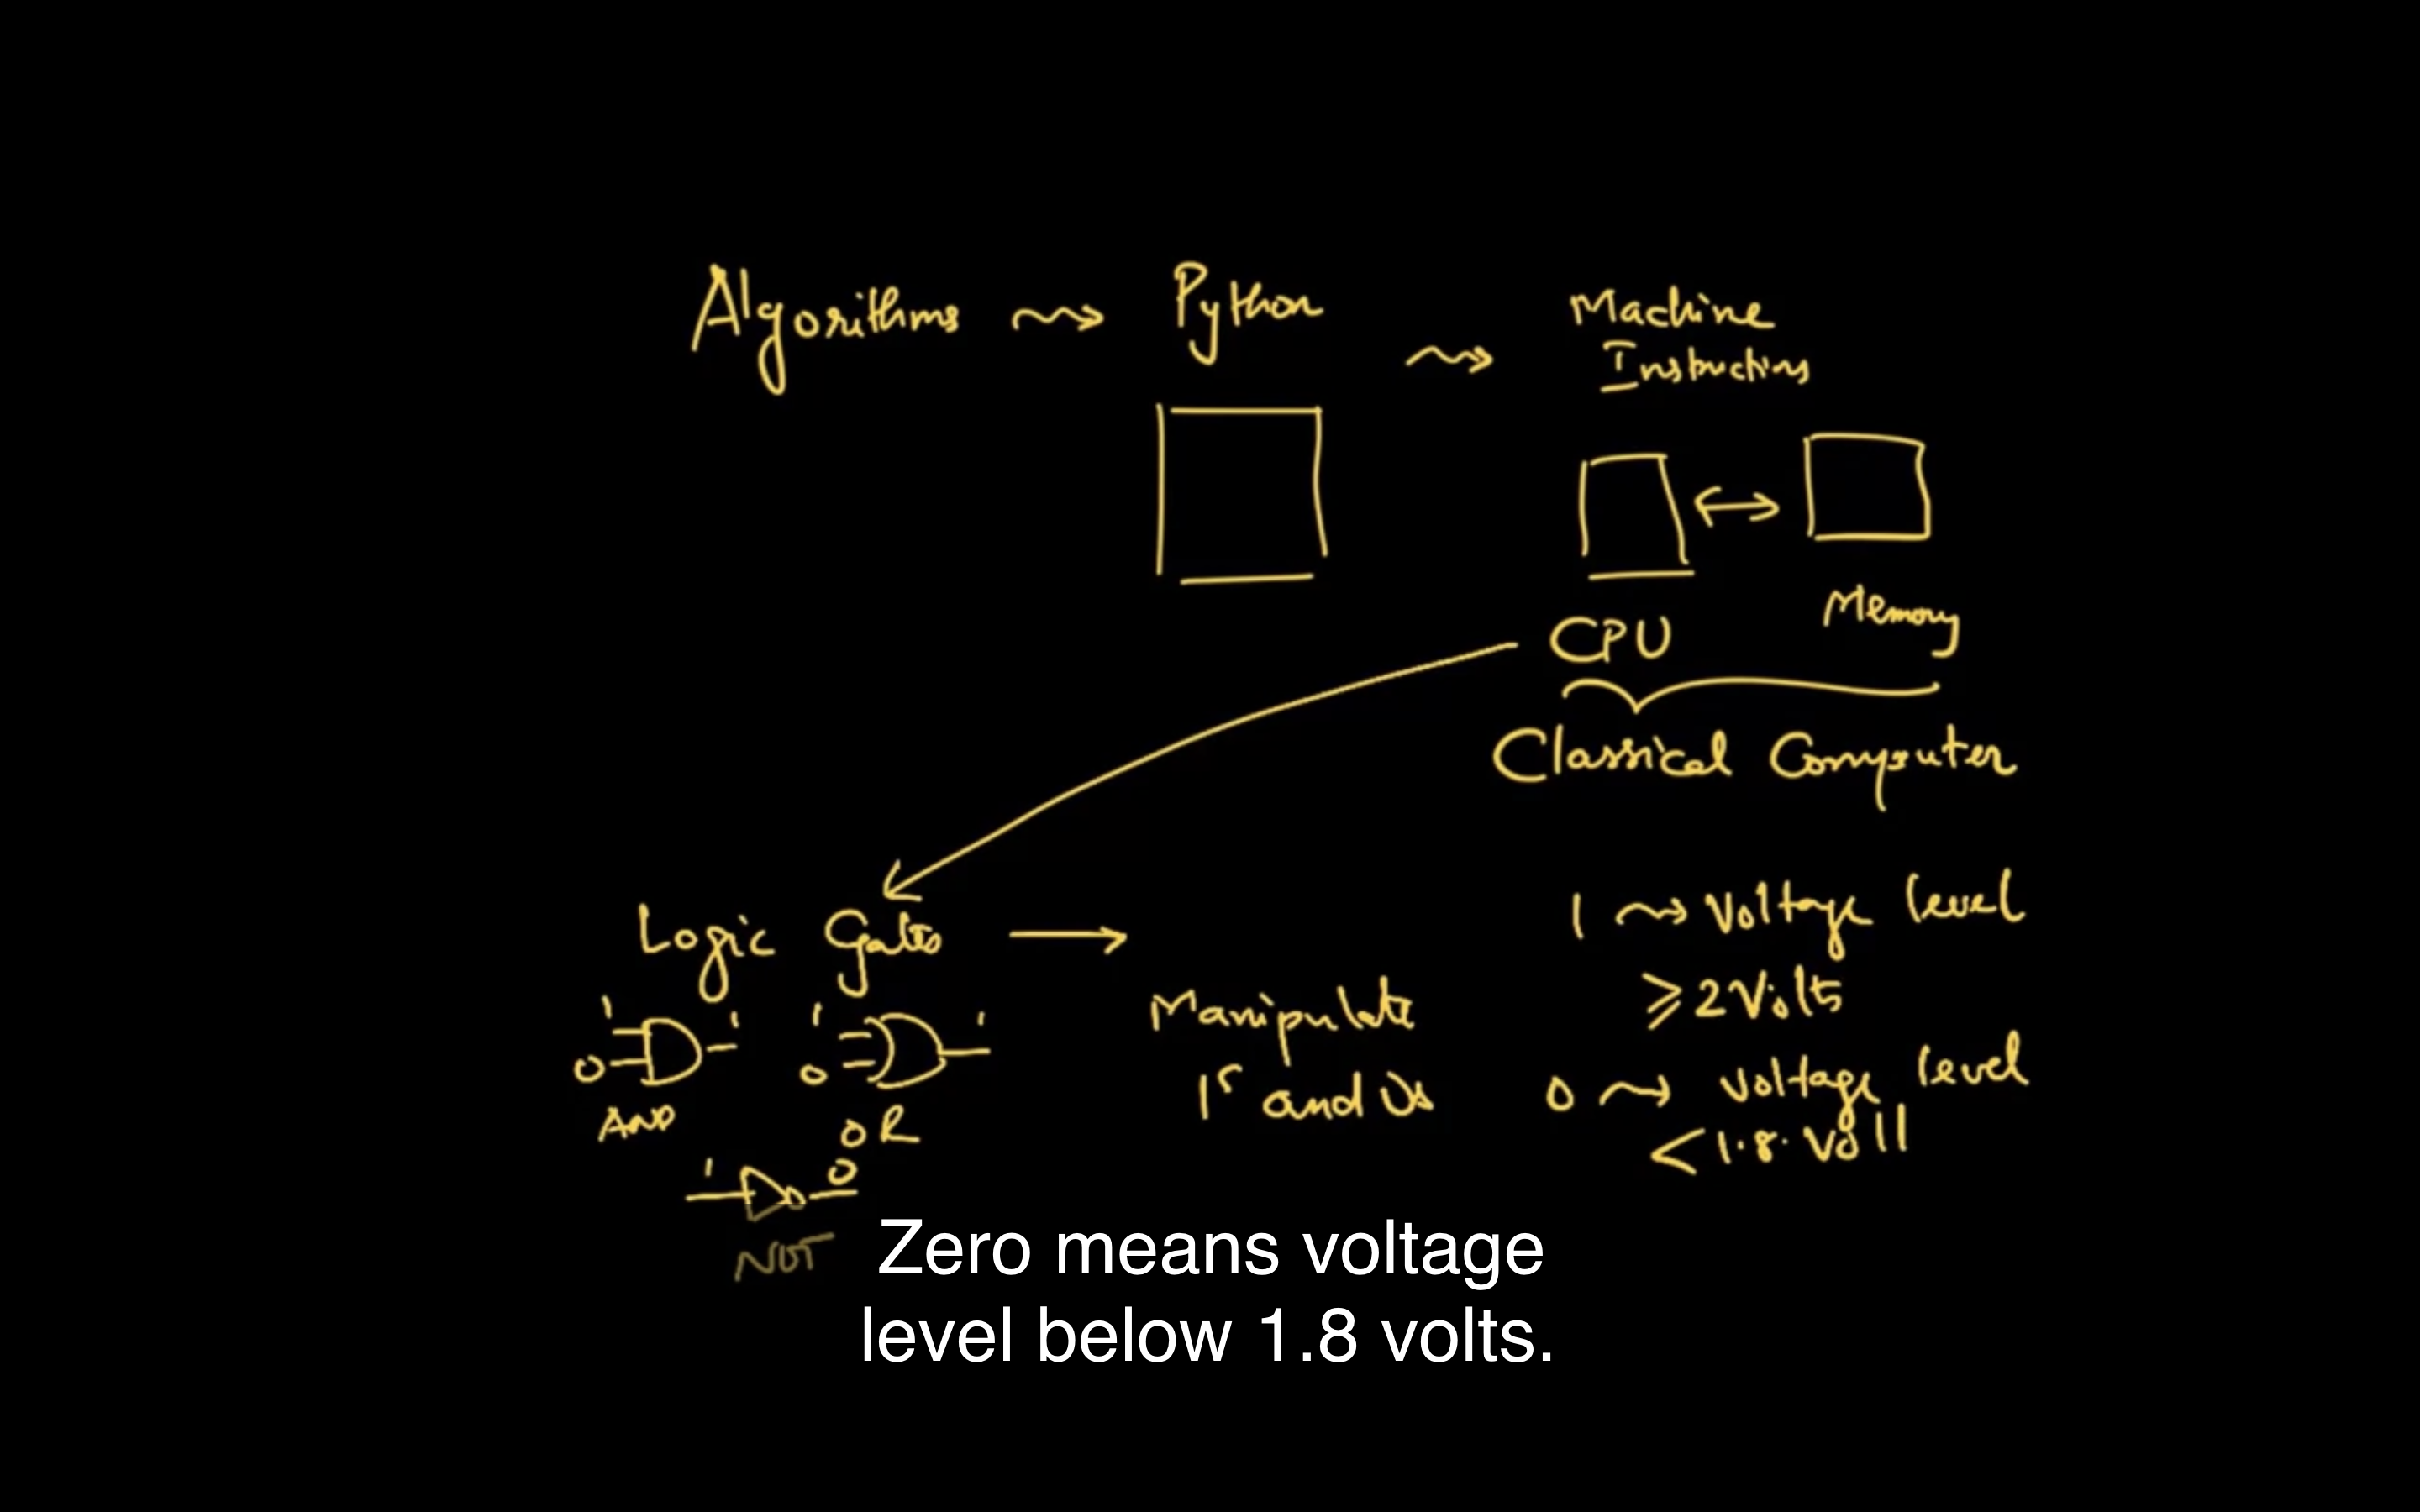 Algorithms ⇝ Python
⇝ Machine
Instructions
CPU ↔ Memory
Classical Computer
Logic Gates →
1 1
0
AND
1 1
0
OR
1 0
NOT
Manipulate
1s and 0s
1 ⇝ Voltage level
⩾ 2 Volts
0 ⇝ voltage level
< 1.8. Volt
Zero means voltage
level below 1.8 volts.